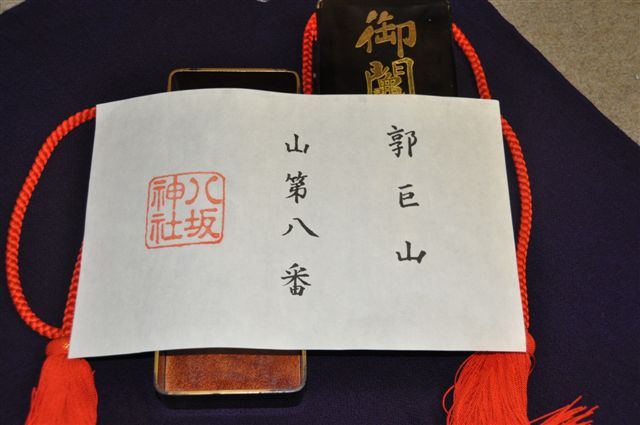 御鬮
郭巨山
山第八番
八坂
神社